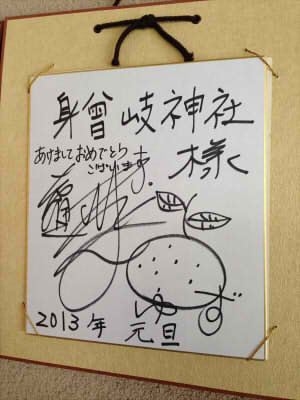 身曾岐神社
様
あけましておめでとう
ございます。
ゆず
2013年 元旦